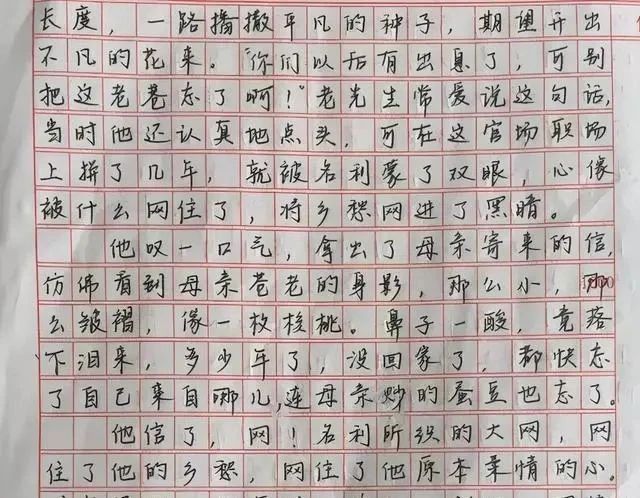 长度，一路播撒平凡的种子，期望开出
不凡的花来。“你们以后有出息了，可别
把这老巷忘了啊！”老先生常爱说这句话，
当时他还认真地点头，可在这官场职场
上拼了几年，就被名利蒙了双眼，心像
被什么网住了，将乡愁网进了黑暗。
他叹一口气，拿出了母亲寄来的信，
仿佛看到母亲苍老的身影，那么小，那
么皱褶，像一枚核桃。鼻子一酸，竟落
下泪来，多少年了，没回家了，都快忘
了自己来自哪儿，连母亲炒的蚕豆也忘了。
他信了，网！名利所织的大网，网
住了他的乡愁，网住了他原本柔情的小。